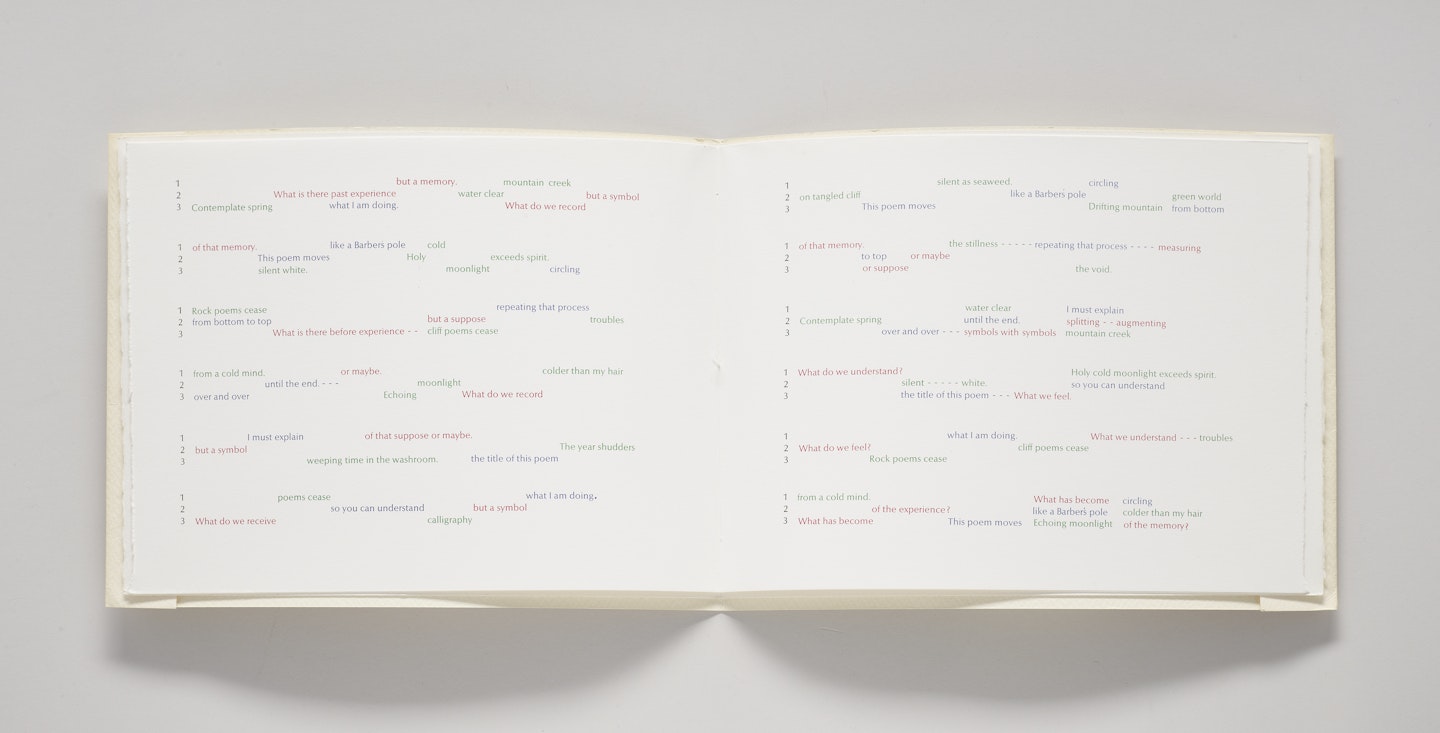 1 but a memory. mountain creek
2 What is there past experience water clear but a symbol
3 Contemplate spring what I am doing. What do we record
1 of that memory. like a Barber's pole cold
2 This poem moves Holy exceeds spirit.
3 silent white. moonlight circling
1 Rock poems cease repeating that process
2 from bottom to top but a suppose troubles
3 What is there before experience - - cliff poems cease
1 from a cold mind. or maybe. colder than my hair
2 until the end. - - - moonlight
3 over and over Echoing What do we record
1 I must explain of that suppose or maybe.
2 but a symbol The year shudders
3 weeping time in the washroom. the title of this poem
1 poems cease what I am doing.
2 so you can understand but a symbol
3 What do we receive calligraphy
1 silent as seaweed. circling
2 on tangled cliff like a Barber's pole green world
3 This poem moves Drifting mountain from bottom
1 of that memory. the stillness - - - - - repeating that process - - - - measuring
2 to top or maybe
3 or suppose the void.
1 water clear I must explain
2 Contemplate spring until the end. splitting - - augmenting
3 over and over - - - symbols with symbols mountain creek
1 What do we understand? Holy cold moonlight exceeds spirit.
2 silent - - - - - white. so you can understand
3 the title of this poem - - - What we feel.
1 what I am doing. What we understand - - - troubles
2 What do we feel? cliff poems cease
3 Rock poems cease
1 from a cold mind. What has become circling
2 of the experience? like a Barber's pole colder than my hair
3 What has become This poem moves Echoing moonlight of the memory?